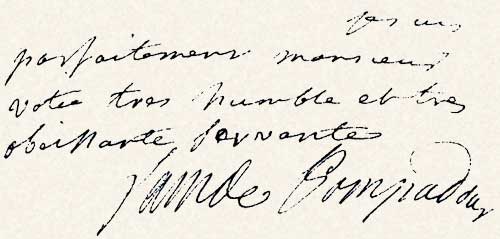 je suis
parfaitement monsieur
votre tres humble et tres
obeissante servante
La m de Pompadour